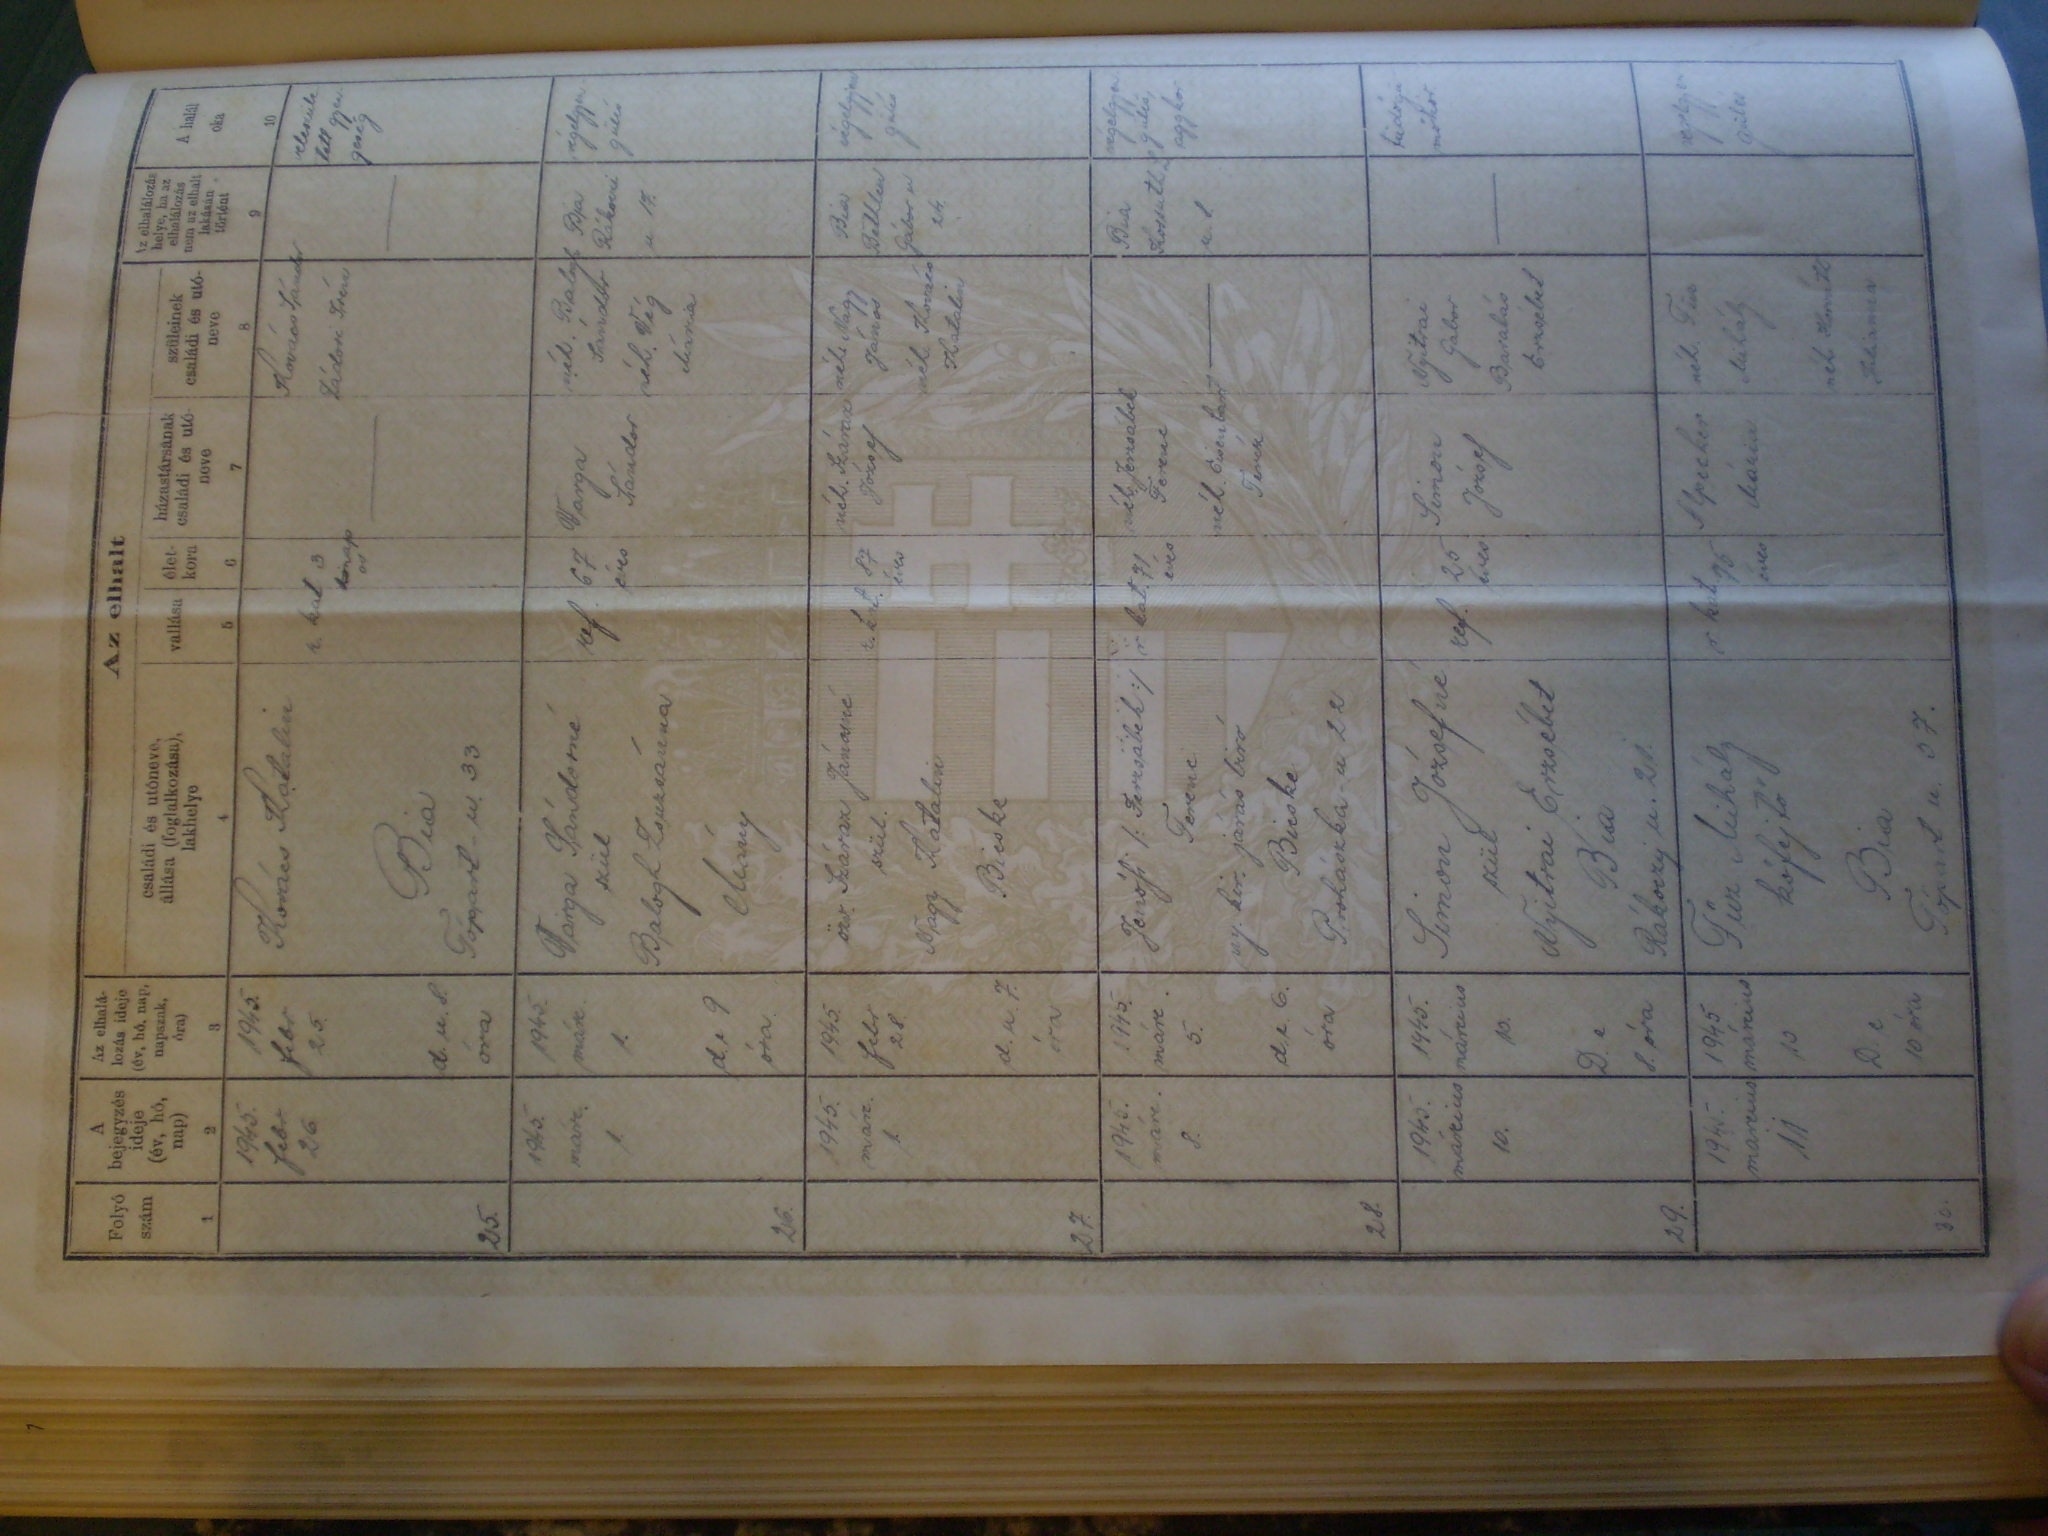 Az elhalt
Folyó
szám
A
bejegyzés
ideje
(év, hó,
nap)
Az elhalá-
lozás ideje
(év, hó, nap,
napszak,
óra)
családi és utóneve,
állása (foglalkozása),
lakhelye
vallása
élet-
kora
házastársának
családi és utó-
neve
szüleinek
családi és utó-
neve
Az elhalálozás
helye, ha az
elhalálozás
nem az elhalt
lakásán
történt
A halál
oka
1
2
3
4
5
6
7
8
9
10
25.
1945.
febr
26
1945.
febr
25.
d. u. 8.
óra
Kovács Katalin
Bia
Tópart-u. 33
r. kat
3
hónap
os
Kovács Sándor
—
gyen
geség
26.
1945.
márc.
1.
1945.
márc.
1.
d. e 9
óra
Varga Sándorné
szül
Balogh Zsuzsánna
Mány
ref.
67
éves
Varga
Sándor
néh. Balogh
Sándor
néh. Vég
Mária
Bia
Rákóczi
u 17.
végelgyen
gülés
27.
1945.
márc.
1.
1945.
febr
28.
d. u. 7.
óra
özv. Száraz Jánosné
szül.
Nagy Katalin
Bicske
r. kat.
87
éves
néh. Száraz
József
néh. Nagy
János
néh. Kovács
Katalin
Bia
Bethlen
Gábor u
24.
végelgyen
gülés
28.
1945.
márc.
8.
1945.
márc.
5.
d. e. 6.
óra
Jenőfi /: Jerzsabek :/
Ferenc
ny. kir. járás biró
Bicske
Prohászka-u 22
r kat.
91
éves
néh. Jerzsabek
Ferenc
néh.
Teréz
—
Bia
Kossuth L
u. 8.
végelgyen
gülés,
aggkor
29.
1945.
március
10.
1945.
március
10.
D. e
8. óra
Simon Józsefné
szül
Nyitrai Erzsébet
Bia
Rákóczy u. 21.
ref.
25
éves
Simon
József
Nyitrai
Gábor
Barabás
Erzsébet
—
30.
1945.
március
11
1945
március
10
D. e
10 óra
Füz Mihály
kőfejtő
Bia
Tópart u. 57.
r kat
76
éves
Specker
Mária
néh. Füz
Mihály
néh
gülés